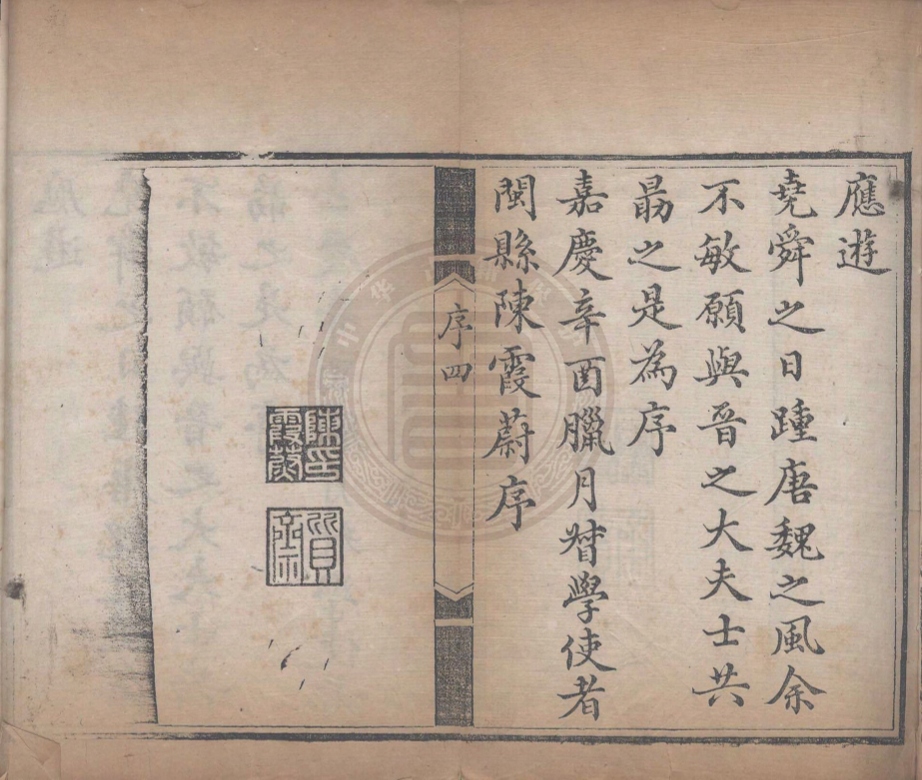 應遊
堯舜之日踵唐魏之風余
不敏願與晉之大夫士共
勗之是為序
嘉慶辛酉臘月督學使者
閩縣陳霞蔚序
序四
陳氏霞蔚